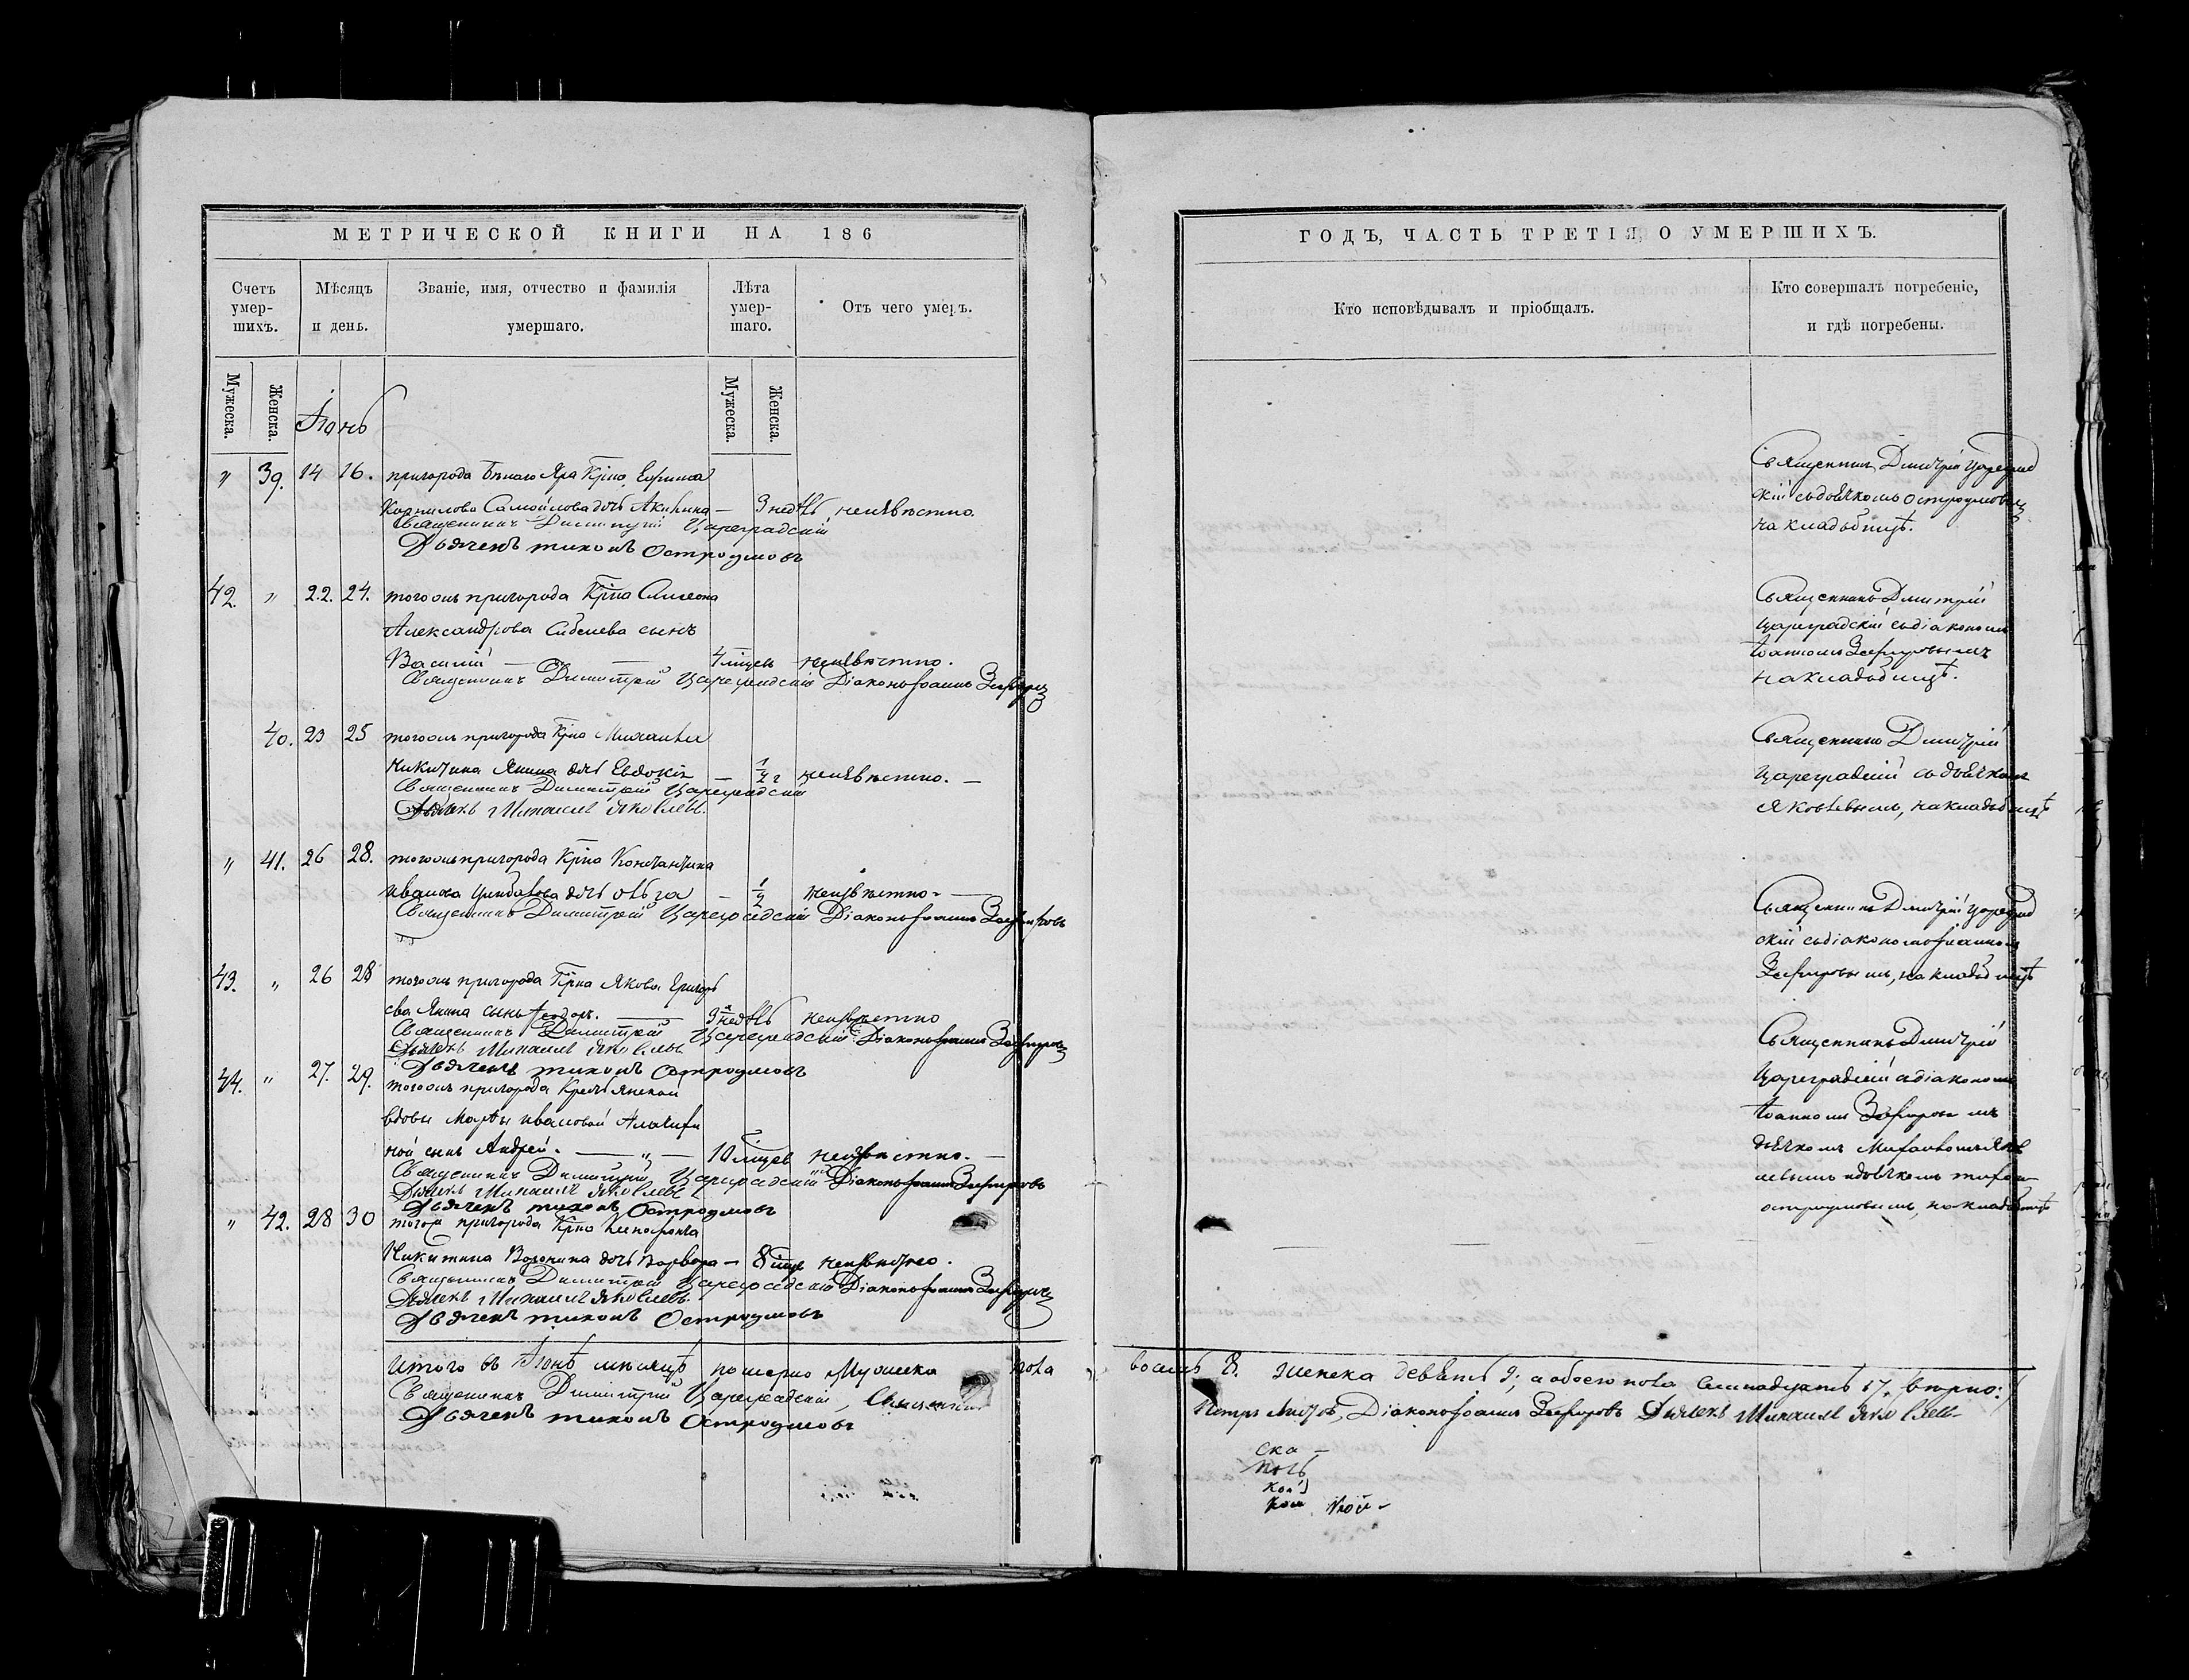 МЕТРИЧЕСКОЙ КНИГИ НА 186
Счетъ умер-шихъ.
Мѣсяцъ и день.
Званіе, имя, отчество и фамилія умершаго.
Лѣта умер-шаго.
Отъ чего умеръ.
Мужеска.
Женска.
Мужеска.
Женска.
Іюнь
" 39. 14 16. пригорода Бѣлаго Яра Крⷭ҇на Ефима
Корнилова Самойлова дочь Акилина — 3 недѣль неизвѣстно.
Священникъ Димитрій Цареградскій
Дьячекъ Тихонъ Остроумовъ
42. " 22. 24. тогоже пригорода Кр-на Симеона
Александрова Сибелева сынъ
Василій — 4 мцевъ неизвѣстно.
Священникъ Димитрій Цареградскій Діаконъ Іоаннъ Зефировъ
40. 23 25 тогоже пригорода Кр-на Михаила
Никитина Янина дочь Евдокія — ½ г неизвѣстно. —
Священникъ Димитрій Цареградскій
Дьячекъ Михаилъ Яковлевъ.
" 41. 26 28. тогоже пригорода Кр-на Константина
Иванова дочь Ольга — ½ неизвѣстно. —
Священникъ Димитрій Цареградскій Діаконъ Іоаннъ Зефировъ
43. " 26 28 тогоже пригорода Кр-на Якова Григорь
ева Янина сынъ Ѳеодоръ. — 3 недѣль неизвѣстно
Священникъ Димитрій Цареградскій Діаконъ Іоаннъ Зефировъ
Дьячекъ Михаилъ Яковлевъ
Дьячекъ Тихонъ Остроумовъ
44. " 27. 29. тогоже пригорода Крестьянской
вдовы Марѳы Ивановой
ной сынъ Андрей. — " — 10 мцевъ неизвѣстно. —
Священникъ Димитрій Цареградскій Діаконъ Іоаннъ Зефировъ
Дьячекъ Михаилъ Яковлевъ
Дьячекъ Тихонъ Остроумовъ
" 42. 28 30 тогоже пригорода Кр-на Ксенофонта
Никитина Воронина дочь Варвара — 8 мце неизвѣстно.
Священникъ Димитрій Цареградскій Діаконъ Іоаннъ Зефировъ
Дьячекъ Михаилъ Яковлевъ.
Дьячекъ Тихонъ Остроумовъ
Итого въ Іюнѣ мѣсяцѣ померло Мужеска пола
Священникъ Димитрій Цареградскій, Священникъ
Дьячекъ Тихонъ Остроумовъ
ГОДЪ, ЧАСТЬ ТРЕТІЯ, О УМЕРШИХЪ.
Кто исповѣдывалъ и пріобщалъ.
Кто совершалъ погребеніе, и гдѣ погребены.
Священникъ Дмитрій Цареград
скій съ дьячкомъ Остроумовымъ
на кладбищѣ.
Священникъ Дмитрій
Цареградскій съ діакономъ
Іоанномъ Зефировымъ
на кладбищѣ.
Священникъ Дмитрій
Цареградскій съ дьячкомъ
Яковлевымъ, на кладбищѣ
Священникъ Дмитрій Цареград
скій съ діакономъ Іоанномъ
Зефировымъ, на кладбищѣ
Священникъ Дмитрій
Цареградскій съ діакономъ
Іоанномъ Зефировымъ
дьячкомъ Михаиломъ Яков
левымъ и дьячкомъ Тихон
Остроумовымъ, на кладбищѣ
восемь 8. Женска девять 9; а обоего пола семнадцать 17. вѣрно:
Петръ Діаконъ Іоаннъ Зефировъ Дьячекъ Михаилъ Яковлевъ
ска —